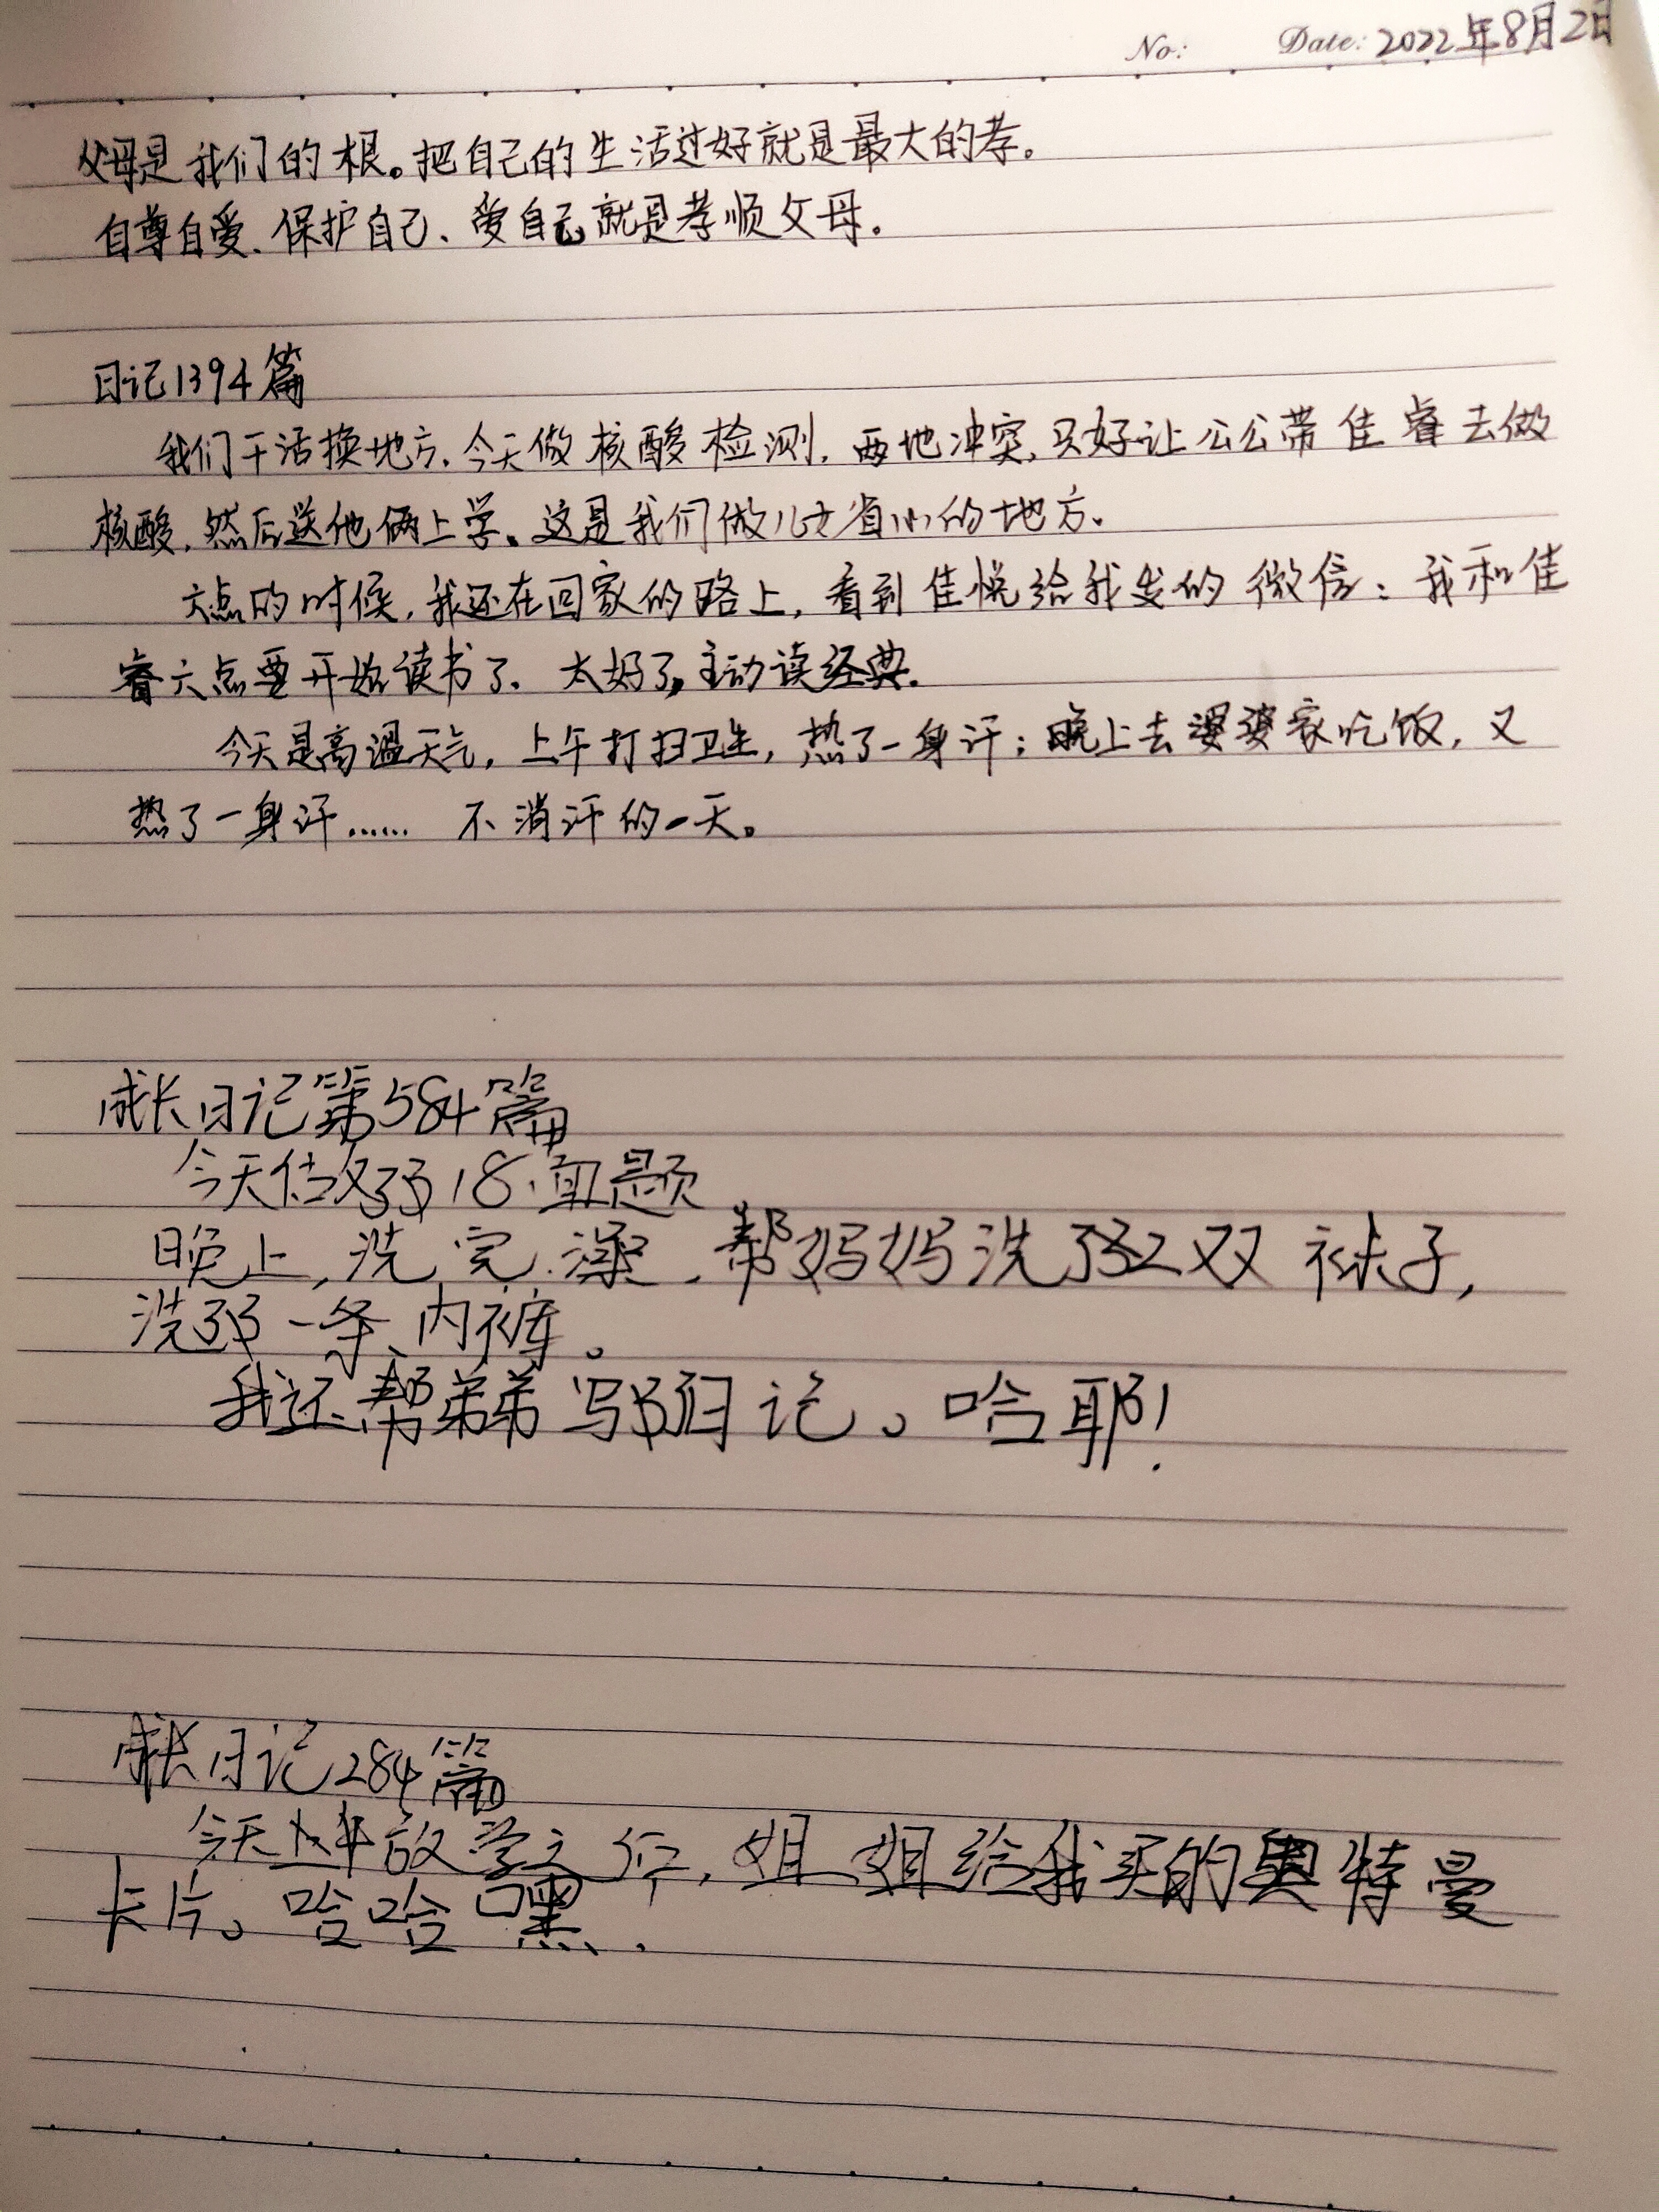 No: Date: 2022年8月2日
父母是我们的根。把自己的生活过好就是最大的孝。
自尊自爱、保护自己、爱自己就是孝顺父母。
日记1394篇
我们干活换地方,今天做核酸检测,两地冲突,只好让公公带佳睿去做
核酸,然后送他俩上学。这是我们做儿女省心的地方。
六点的时候,我还在回家的路上,看到佳悦给我发的微信:我和佳
睿六点要开始读书了。太好了,主动读经典。
今天是高温天气,上午打扫卫生,热了一身汗;晚上去婆婆家吃饭,又
热了一身汗…… 不消汗的一天。
成长日记第584篇
今天估做了18面题
晚上,洗完澡,帮妈妈洗了2双袜子,
洗了一条内裤。
我还帮弟弟写了日记。哈耶!
成长日记284篇
今天上午放学之后,姐姐给我买的奥特曼
卡片。哈哈嘿.